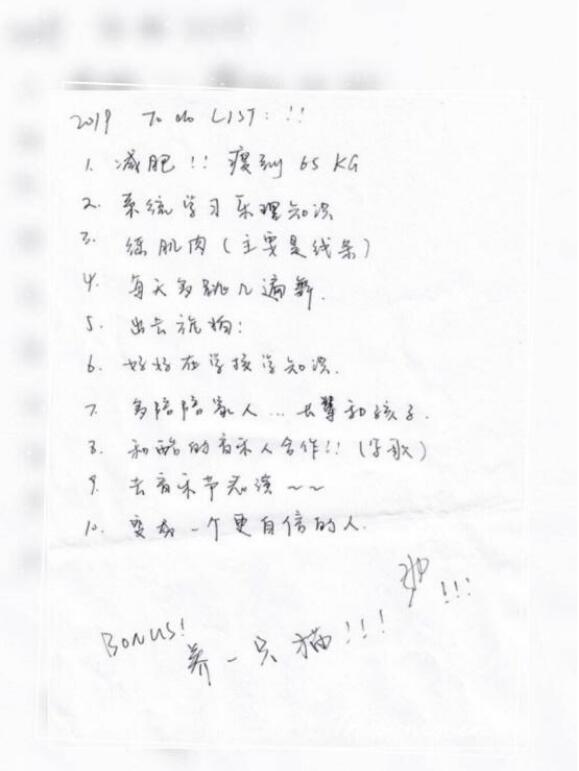 2019 To do LIST: !!
1. 减肥!! 瘦到 65 KG
2. 系统学习乐理知识
3. 练肌肉(主要是线条)
4. 每天多跳几遍舞.
5. 出去旅拍:
6. 好好在学校学知识.
7. 多陪陪家人... 长辈和孩子.
8. 和酷的音乐人合作!! (写歌)
9. 去音乐节表演~~
10. 变成一个更自信的人.
!!!
BONUS!
养一只猫!!!